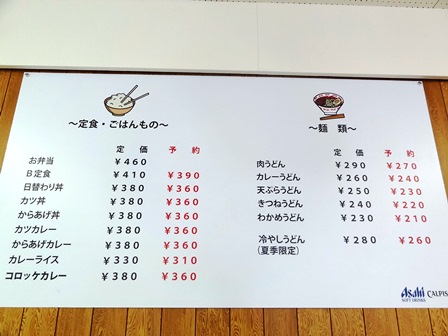 ～定食・ごはんもの～
定価 予約
お弁当 ￥460
B定食 ￥410 ￥390
日替わり丼 ￥380 ￥360
カツ丼 ￥380 ￥360
からあげ丼 ￥380 ￥360
カツカレー ￥380 ￥360
からあげカレー ￥380 ￥360
カレーライス ￥330 ￥310
コロッケカレー ￥380 ￥360
～麺 類～
定価 予約
肉うどん ￥290 ￥270
カレーうどん ￥260 ￥240
天ぷらうどん ￥250 ￥230
きつねうどん ￥240 ￥220
わかめうどん ￥230 ￥210
冷やしうどん ￥280 ￥260
(夏季限定)
Asahi CALPIS
SOFT DRINKS